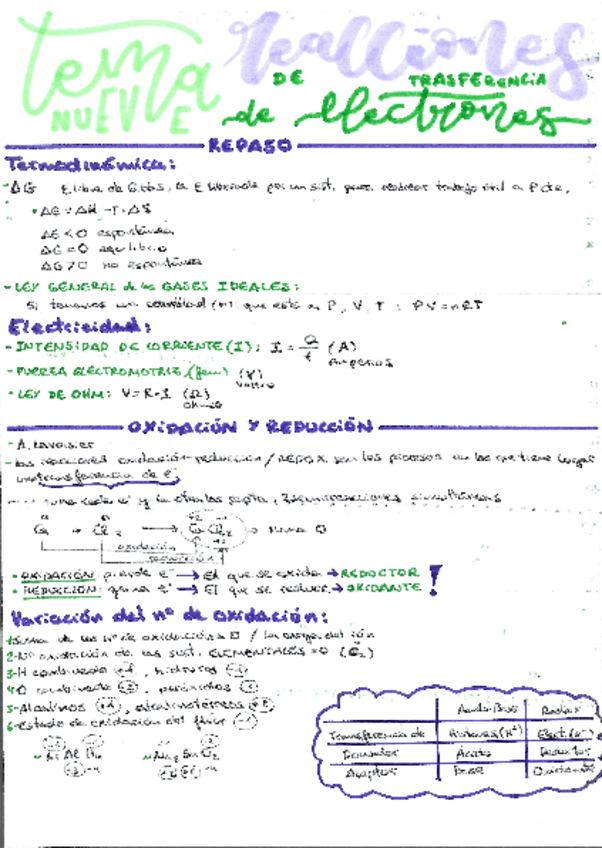 tema NUEVE
reacciones
DE TRASFERENCIA
de electrones
REPASO
Termodinámica:
- ΔG E libre de Gibbs, la E liberada por un sist. para realizar trabajo útil a P cte.
• ΔG = ΔH - T · ΔS
ΔG < 0 espontánea
ΔG = 0 equilibrio
ΔG > 0 no espontánea
- LEY GENERAL de los GASES IDEALES:
Si tenemos una cantidad (n) que está a P, V, T : PV = nRT
Electricidad:
- INTENSIDAD DE CORRIENTE (I): I = Q/t (A)
Amperios
- FUERZA ELECTROMOTRIZ (fem) (V)
Voltio
- LEY DE OHM: V = R·I (Ω)
Ohmio
OXIDACIÓN Y REDUCCIÓN
- A. Lavoisier
- Las reacciones oxidación-reducción / REDOX son los procesos en los que tiene lugar
una transferencia de e⁻
una cede e⁻ y la otra los capta, simultáneas
Ca + Cl₂ → CaCl₂ → suma 0
oxidación
reducción
• OXIDACIÓN: pierde e⁻ → El que se oxida → REDUCTOR !
• REDUCCIÓN: gana e⁻ → El que se reduce → OXIDANTE
Variación del nº de oxidación:
1-Suma de los nº de oxidación = 0 / la carga del ión
2-Nº oxidación de las sust. ELEMENTALES = 0 (O₂)
3-H combinado +1, hidruros -1
4-O combinado -2, peróxidos -1
5-Alcalinos +1, alcalinotérreos +2
6-Estado de oxidación del flúor -1
Ácido-Base Redox
Transferencia de Protones (H⁺) Elect. (e⁻)
Donador Ácido Reductor
Aceptor Base Oxidante